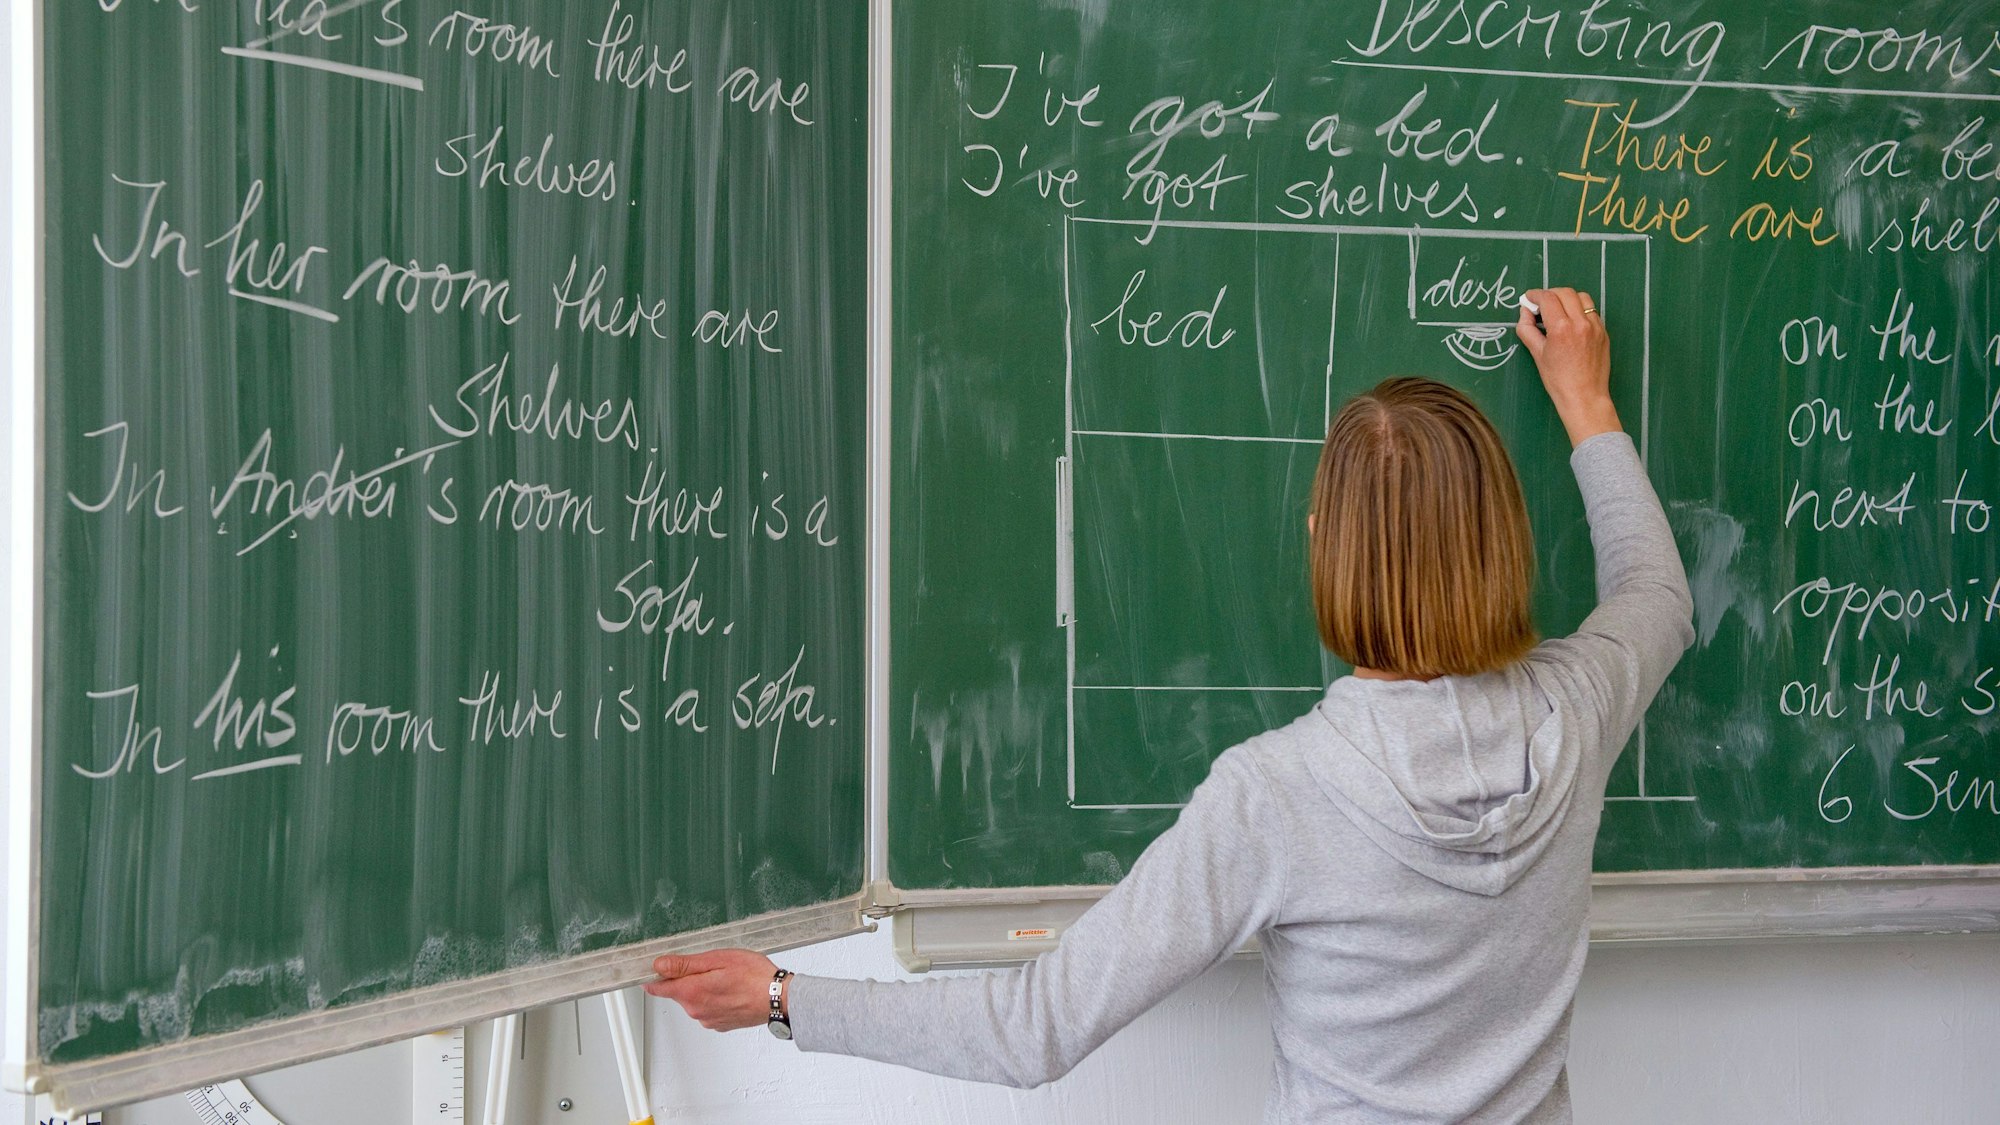 room there are
shelves.
In her room there are
shelves.
In Andrei's room there is a
sofa.
In his room there is a sofa.
Describing rooms
I've got a bed. There is a
I've got shelves. There are
bed
desk
on the
on the
next to
on the
6
wittler
15
10